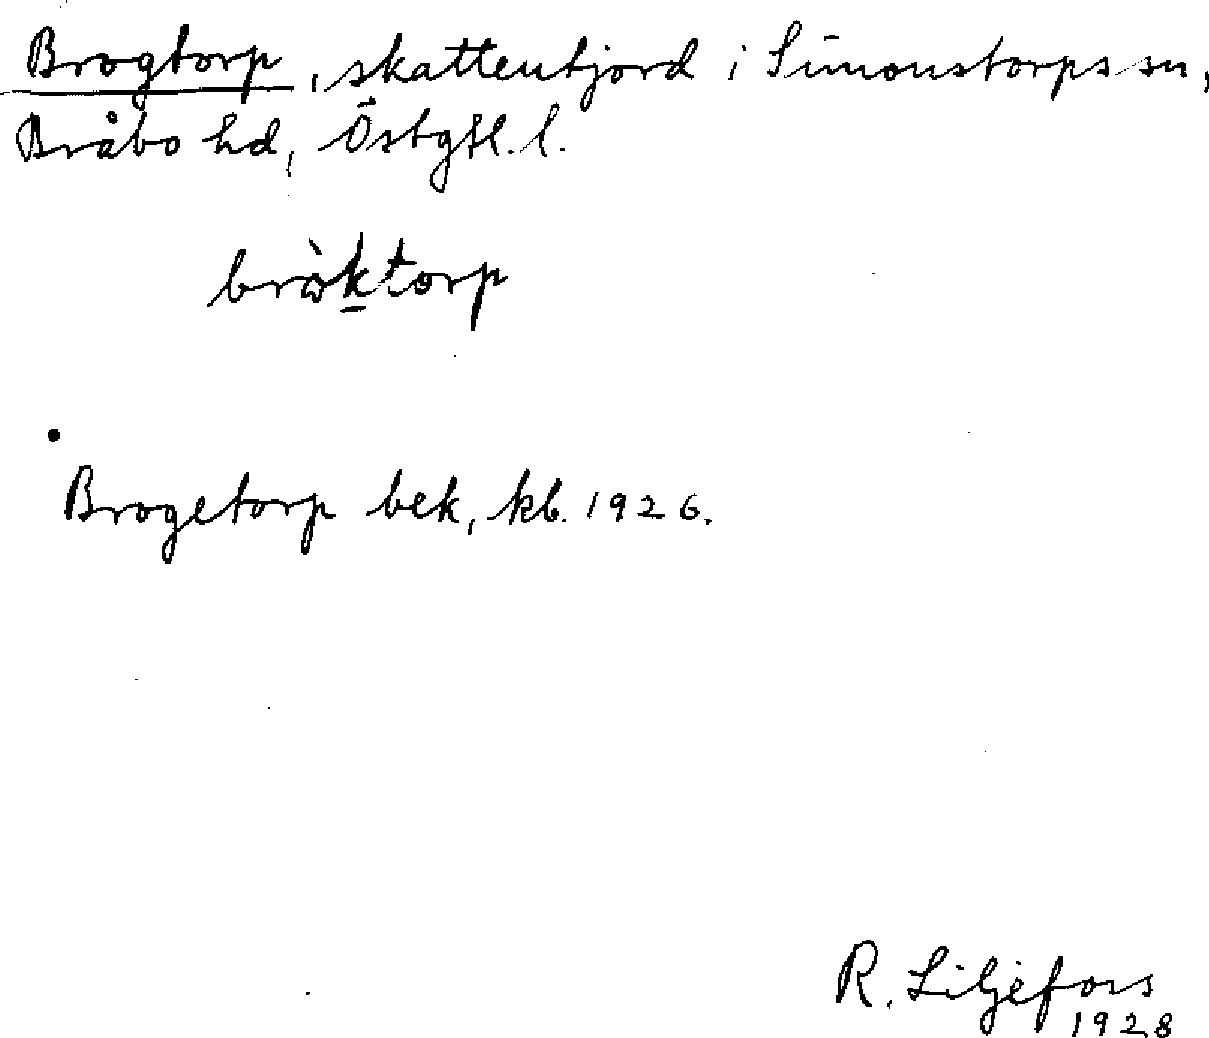 Brogtorp, skattenhjord i Simonstorps sn,
Bråbo hd, Östgtl. l.
bròktorp
Brogetorp bek, kb. 1926.
R. Liljefors
1928